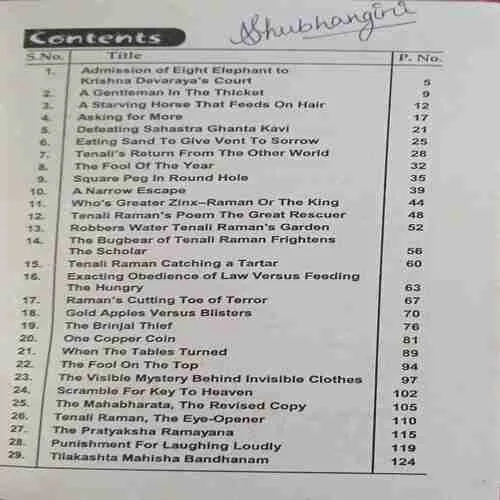 Shubhangini
Contents
S.No. Title P. No.
1. Admission of Eight Elephant to
Krishna Devaraya's Court 5
2. A Gentleman In The Thicket 9
3. A Starving Horse That Feeds On Hair 12
4. Asking for More 17
5. Defeating Sahastra Ghanta Kavi 21
6. Eating Sand To Give Vent To Sorrow 25
7. Tenali's Return From The Other World 28
8. The Fool Of The Year 32
9. Square Peg In Round Hole 35
10. A Narrow Escape 39
11. Who's Greater Zinx–Raman Or The King 44
12. Tenali Raman's Poem The Great Rescuer 48
13. Robbers Water Tenali Raman's Garden 52
14. The Bugbear of Tenali Raman Frightens
The Scholar 56
15. Tenali Raman Catching a Tartar 60
16. Exacting Obedience of Law Versus Feeding
The Hungry 63
17. Raman's Cutting Toe of Terror 67
18. Gold Apples Versus Blisters 70
19. The Brinjal Thief 76
20. One Copper Coin 81
21. When The Tables Turned 89
22. The Fool On The Top 94
23. The Visible Mystery Behind Invisible Clothes 97
24. Scramble For Key To Heaven 102
25. The Mahabharata, The Revised Copy 105
26. Tenali Raman, The Eye-Opener 110
27. The Pratyaksha Ramayana 115
28. Punishment For Laughing Loudly 119
29. Tilakashta Mahisha Bandhanam 124